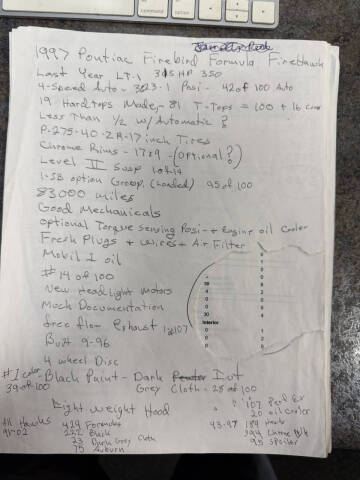 1997 Pontiac Firebird Formula FireHawk
Last Year LT-1 315 HP 350
4-Speed Auto - 3.23-1 Posi - 42 of 100 Auto
19 Hardtops Made, - 81 T-Tops = 100 + 16 conv
Less Than 1/2 w/ Automatic ?
P-275-40-ZR-17 inch Tires
Chrome Rims - 17x9 - (Optional?)
Level II Susp 1 of 14
1-SB option Group. (Loaded) 95 of 100
83,000 miles
Good Mechanicals
optional Torque sensing Posi - + Engine oil cooler
Fresh Plugs + wires + Air Filter
Mobil 1 oil
#14 of 100
New Headlight motors
Much Documentation
free flow Exhaust 1 of 107
Built 9-96
4 wheel Disc
Interior
#1 color Black Paint - Dark Int
39 of 100 Grey Cloth - 28 of 100
Light weight Hood
107
20 oil cooler
All Hawks 429 Formulas
93-97 189
91-02 222 Black
23 Dark Grey Cloth
75 Auburn
95 Spoiler